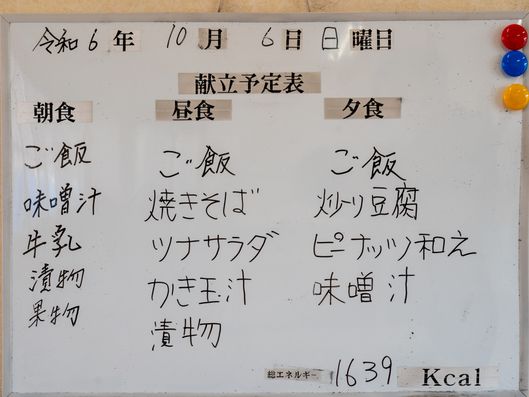 令和6年 10月 6日 日曜日
献立予定表
朝食
ご飯
味噌汁
牛乳
漬物
果物
昼食
ご飯
焼きそば
ツナサラダ
かき玉汁
漬物
夕食
ご飯
炒り豆腐
ピーナッツ和え
味噌汁
総エネルギー 1639 Kcal